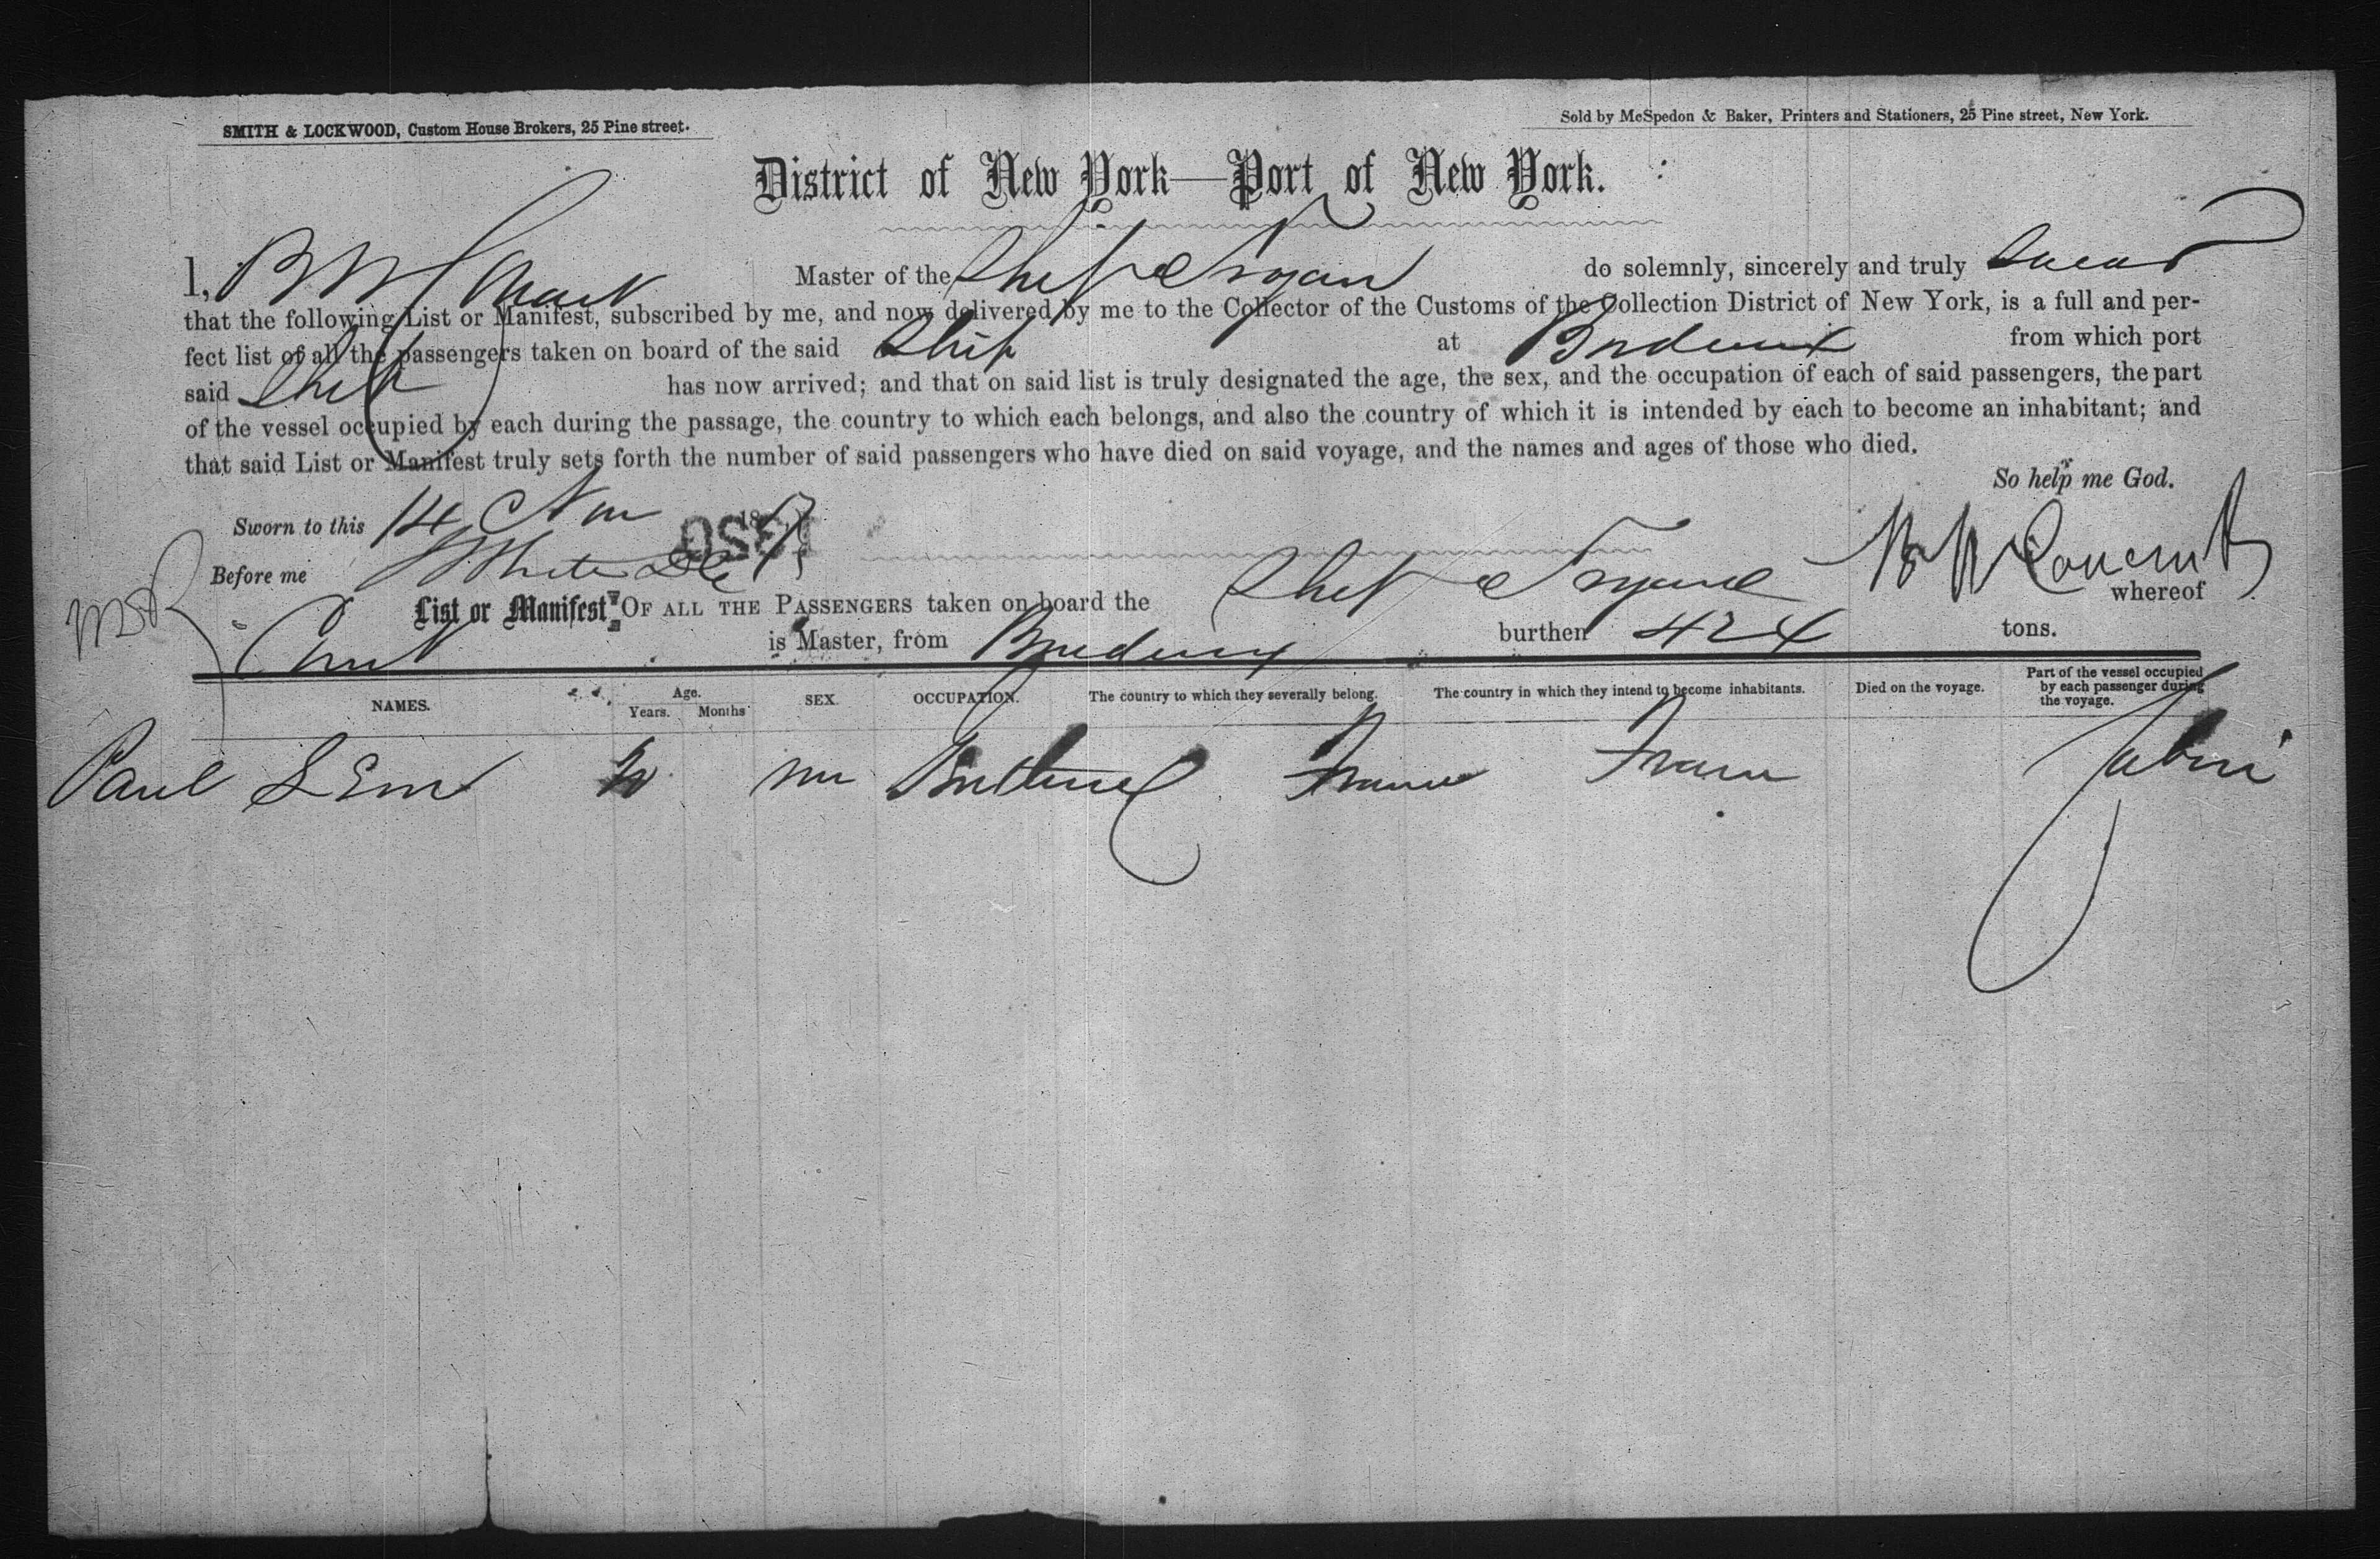 SMITH & LOCKWOOD, Custom House Brokers, 25 Pine street.
Sold by McSpedon & Baker, Printers and Stationers, 25 Pine street, New York.
District of New York—Port of New York.
I, B W Master of the Ship Trojan do solemnly, sincerely and truly Swear
that the following List or Manifest, subscribed by me, and now delivered by me to the Collector of the Customs of the Collection District of New York, is a full and per-
fect list of all the passengers taken on board of the said Ship at Bordeaux from which port
said Ship has now arrived; and that on said list is truly designated the age, the sex, and the occupation of each of said passengers, the part
of the vessel occupied by each during the passage, the country to which each belongs, and also the country of which it is intended by each to become an inhabitant; and
that said List or Manifest truly sets forth the number of said passengers who have died on said voyage, and the names and ages of those who died.
So help me God.
Sworn to this 14 Nov 18
1850
Before me
List or Manifest OF ALL THE PASSENGERS taken on board the Ship whereof
is Master, from Bordeaux burthen 424 tons.
NAMES. Age. Years. Months SEX. OCCUPATION. The country to which they severally belong. The country in which they intend to become inhabitants. Died on the voyage. Part of the vessel occupied by each passenger during the voyage.
Paul France France Cabin